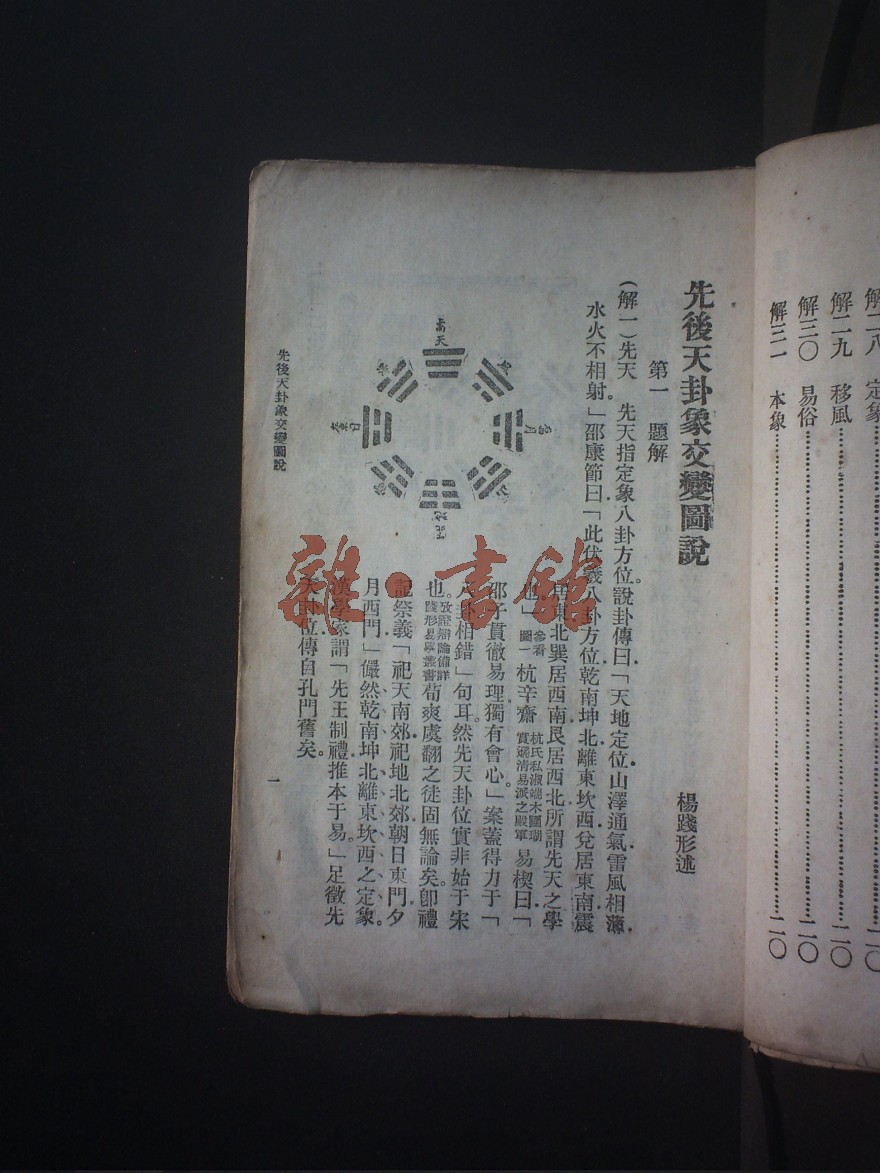 解二八 定象……二〇
解二九 移風……二〇
解三〇 易俗……二〇
解三一 本象……二〇
先後天卦象交變圖說
楊踐形述
第一 題解
(解一)先天 先天指定象八卦方位。說卦傳曰「天地定位山澤通氣雷風相薄
水火不相射」邵康節曰「此伏羲八卦方位乾南坤北離東坎西兌居東南震
居東北巽居西南艮居西北所謂先天之學
也」參看圖一杭辛齋杭氏私淑端木國瑚實遜清易派之殿軍易楔曰「
邵子貫徹易理獨有會心」案蓋得力于「
八卦相錯」句耳然先天卦位實非始于宋
也。攷證辯論備詳踐形易學叢書荀爽虞翻之徒固無論矣卽禮
記祭義「祀天南郊祀地北郊朝日東門夕
月西門」儼然乾南坤北離東坎西之定象。
漢學家謂「先王制禮推本于易。」足徵先
天卦位傳自孔門舊矣。
南天
先後天卦象交變圖說
一
雜·書館